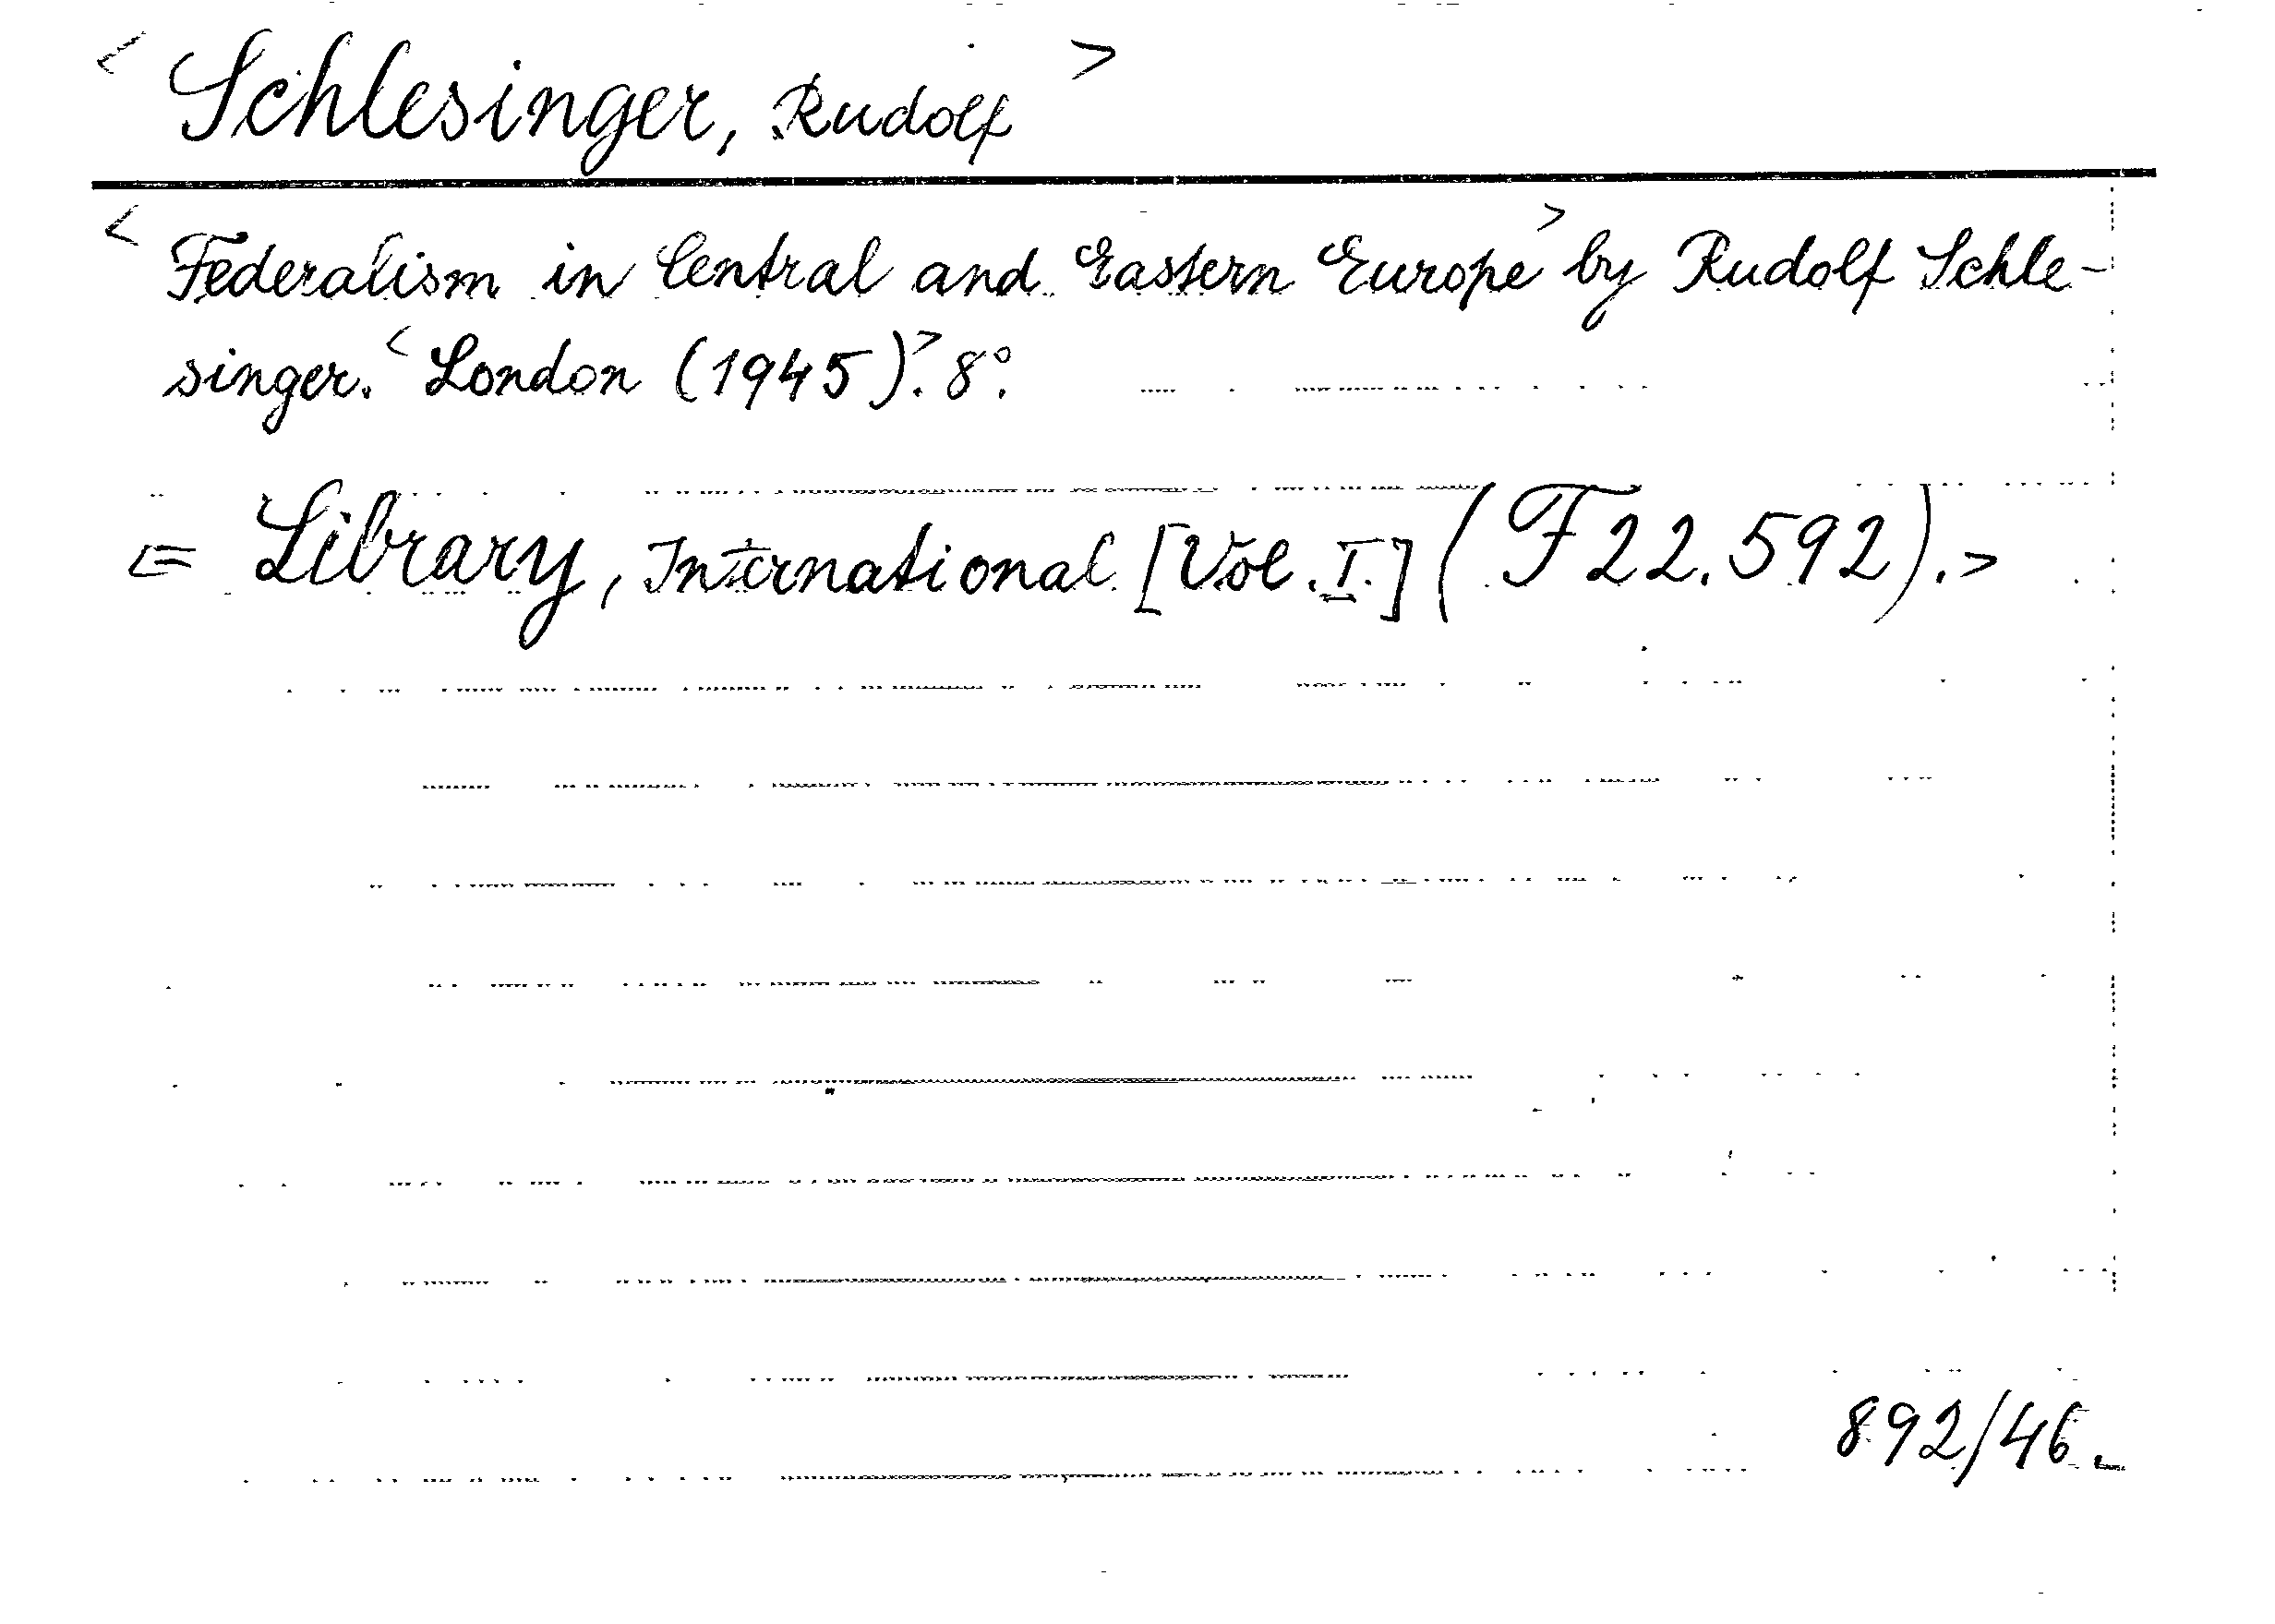 < Schlesinger, Rudolf >
< Federalism in Central and Eastern Europe > by Rudolf Schle-
singer. < London (1945) >. 8°.
<= Library, International [Vol. I.] (F 22.592). >
892/46.